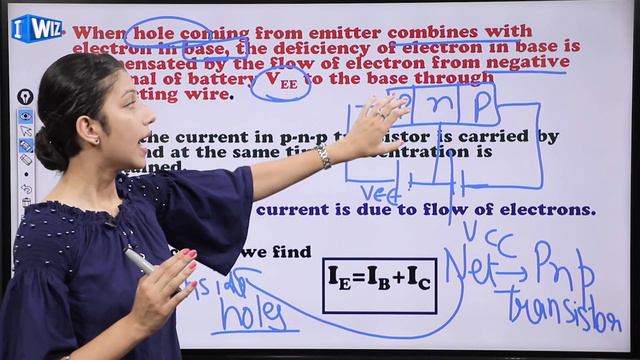 I WIZ
• When hole coming from emitter combines with
electron in base, the deficiency of electron in base is
pensated by the flow of electron from negative
nal of battery VEE to the base through
ting wire.
p n p
the current in p-n-p tr istor is carried by
nd at the same tim centration is
ined.
VEE
current is due to flow of electrons.
VCC
we find
IE=IB+IC
Net → Pnp
transistor
holes